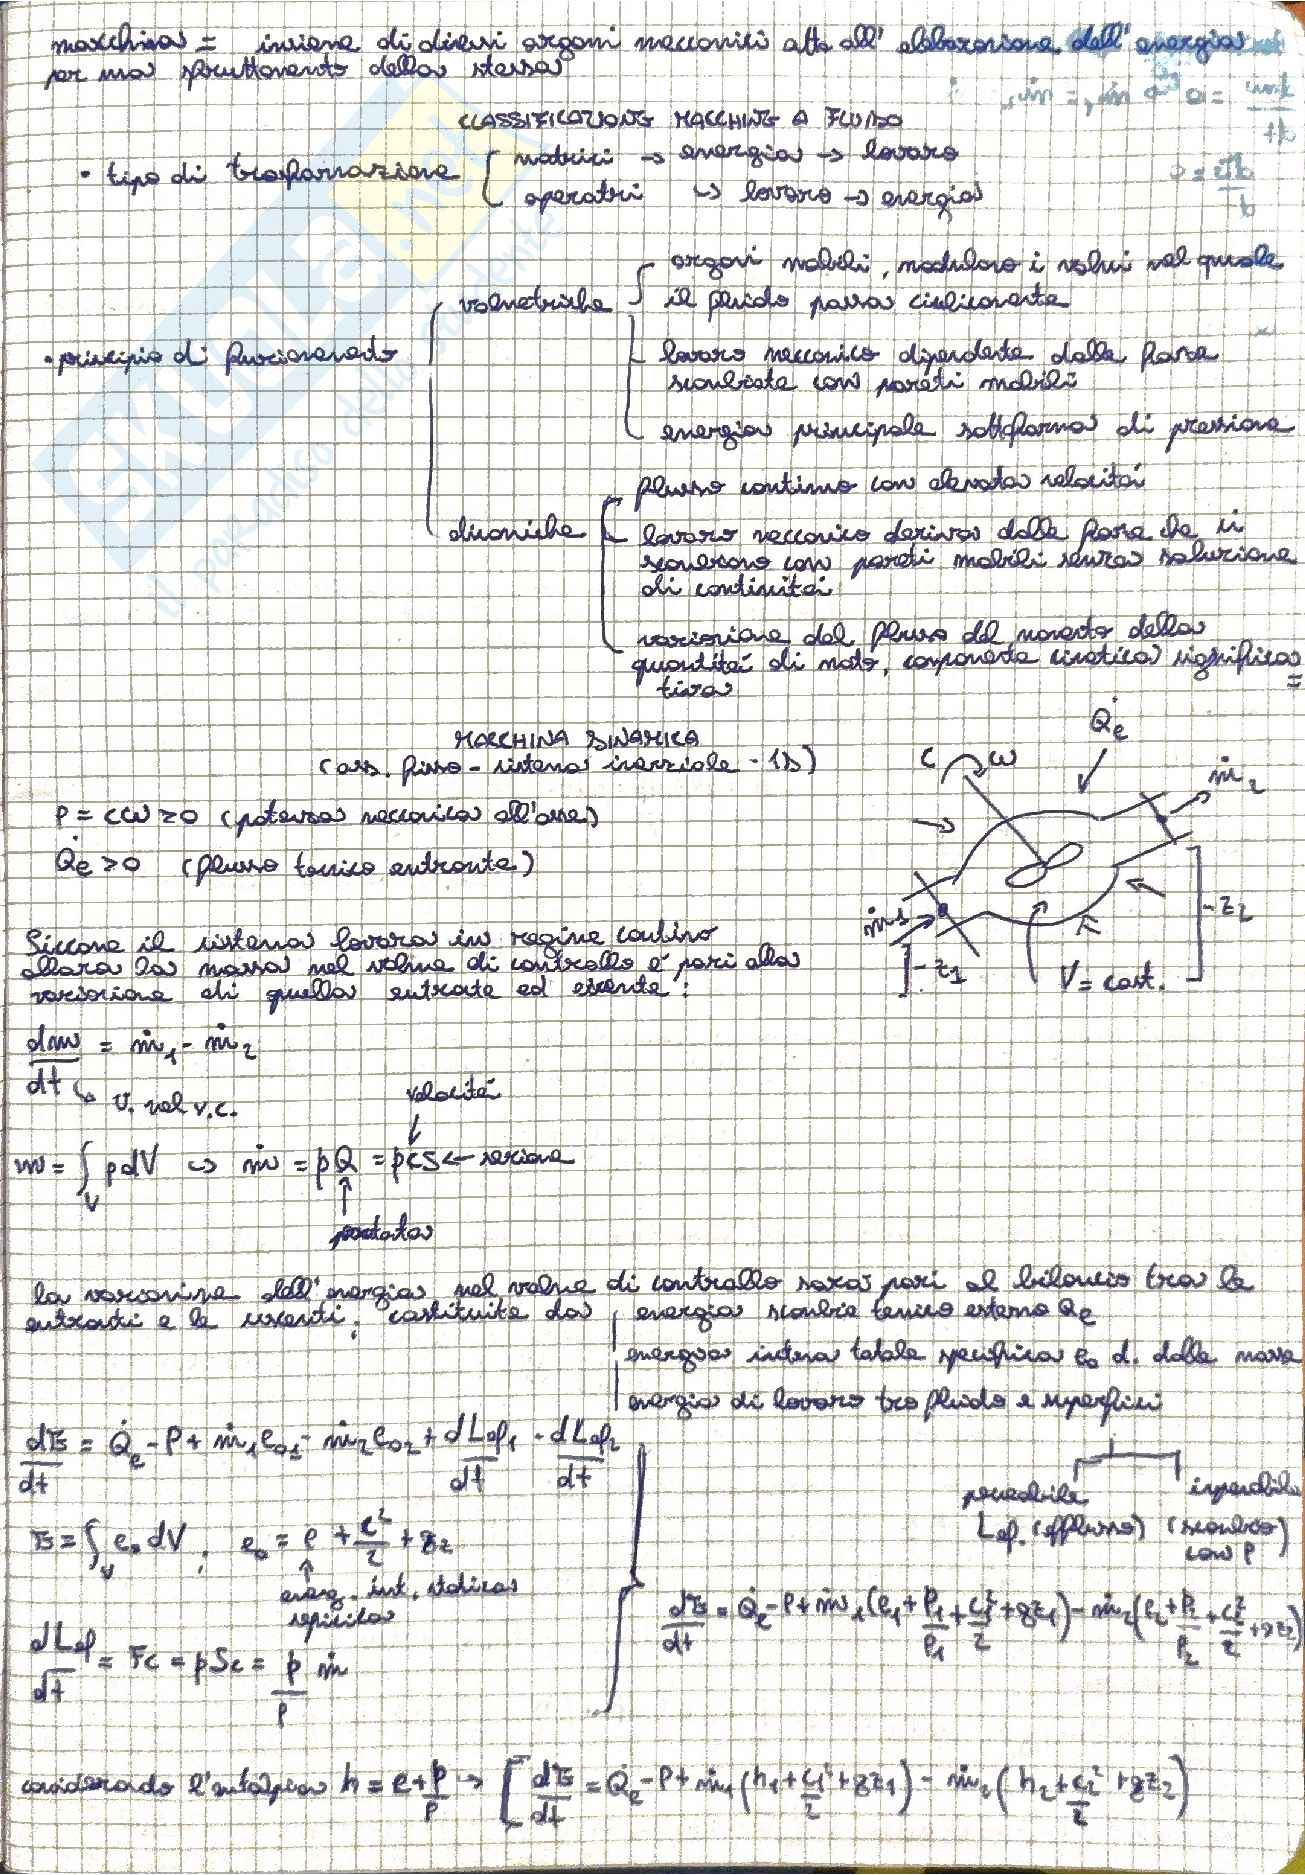 macchina = insieme di diversi organi meccanici atto all'elaborazione dell'energia
per uno sfruttamento della stessa
CLASSIFICAZIONE MACCHINE A FLUIDO
• tipo di trasformazione
motrici → energia → lavoro
operatrici ↳ lavoro → energia
• principio di funzionamento
volumetriche
organi mobili, modulano i volumi nel quale
il fluido passa ciclicamente
lavoro meccanico dipendente dalla forza
scambiata con pareti mobili
energia principale sottoforma di pressione
dinamiche
flusso continuo con elevata velocità
lavoro meccanico deriva dalle forze che si
scambiano con pareti mobili senza soluzione
di continuità
variazione del flusso del momento della
quantità di moto, componente cinetica significa
tiva
MACCHINA DINAMICA
(ass. fisso - sistema inerziale - 1D)
P = Cω > 0 (potenza meccanica all'asse)
Q̇e > 0 (flusso termico entrante)
C ω Q̇e ṁ2
ṁ1 z1 z2 V = cost.
Siccome il sistema lavora in regime continuo
allora la massa nel volume di controllo è pari alla
variazione di quella entrante ed uscente:
dm/dt = ṁ1 - ṁ2
↳ V. nel v.c.
velocità
m = ∫V ρdV → ṁ = ρQ = ρcS ← sezione
portata
la variazione dell'energia nel volume di controllo sarà pari al bilancio tra le
entranti e le uscenti; costituite da
energia scambio termico esterno Q̇e
energia interna totale specifica e0 d. dalla massa
energia di lavoro tra fluido e superfici
permeabile Lef. (efflusso)
impermeabile (scambio con P)
dE/dt = Q̇e - P + ṁ1e01 - ṁ2e02 + dLef1/dt - dLef2/dt
E = ∫V e0 dV; e0 = e + c²/2 + gz
energ. int. statica
specifica
dLef/dt = Fc = pSc = p/ρ ṁ
dE/dt = Q̇e - P + ṁ1(e1 + p1/ρ1 + c1²/2 + gz1) - ṁ2(e2 + p2/ρ2 + c2²/2 + gz2)
considerando l'entalpia h = e + p/ρ → [dE/dt = Q̇e - P + ṁ1(h1 + c1²/2 + gz1) - ṁ2(h2 + c2²/2 + gz2)